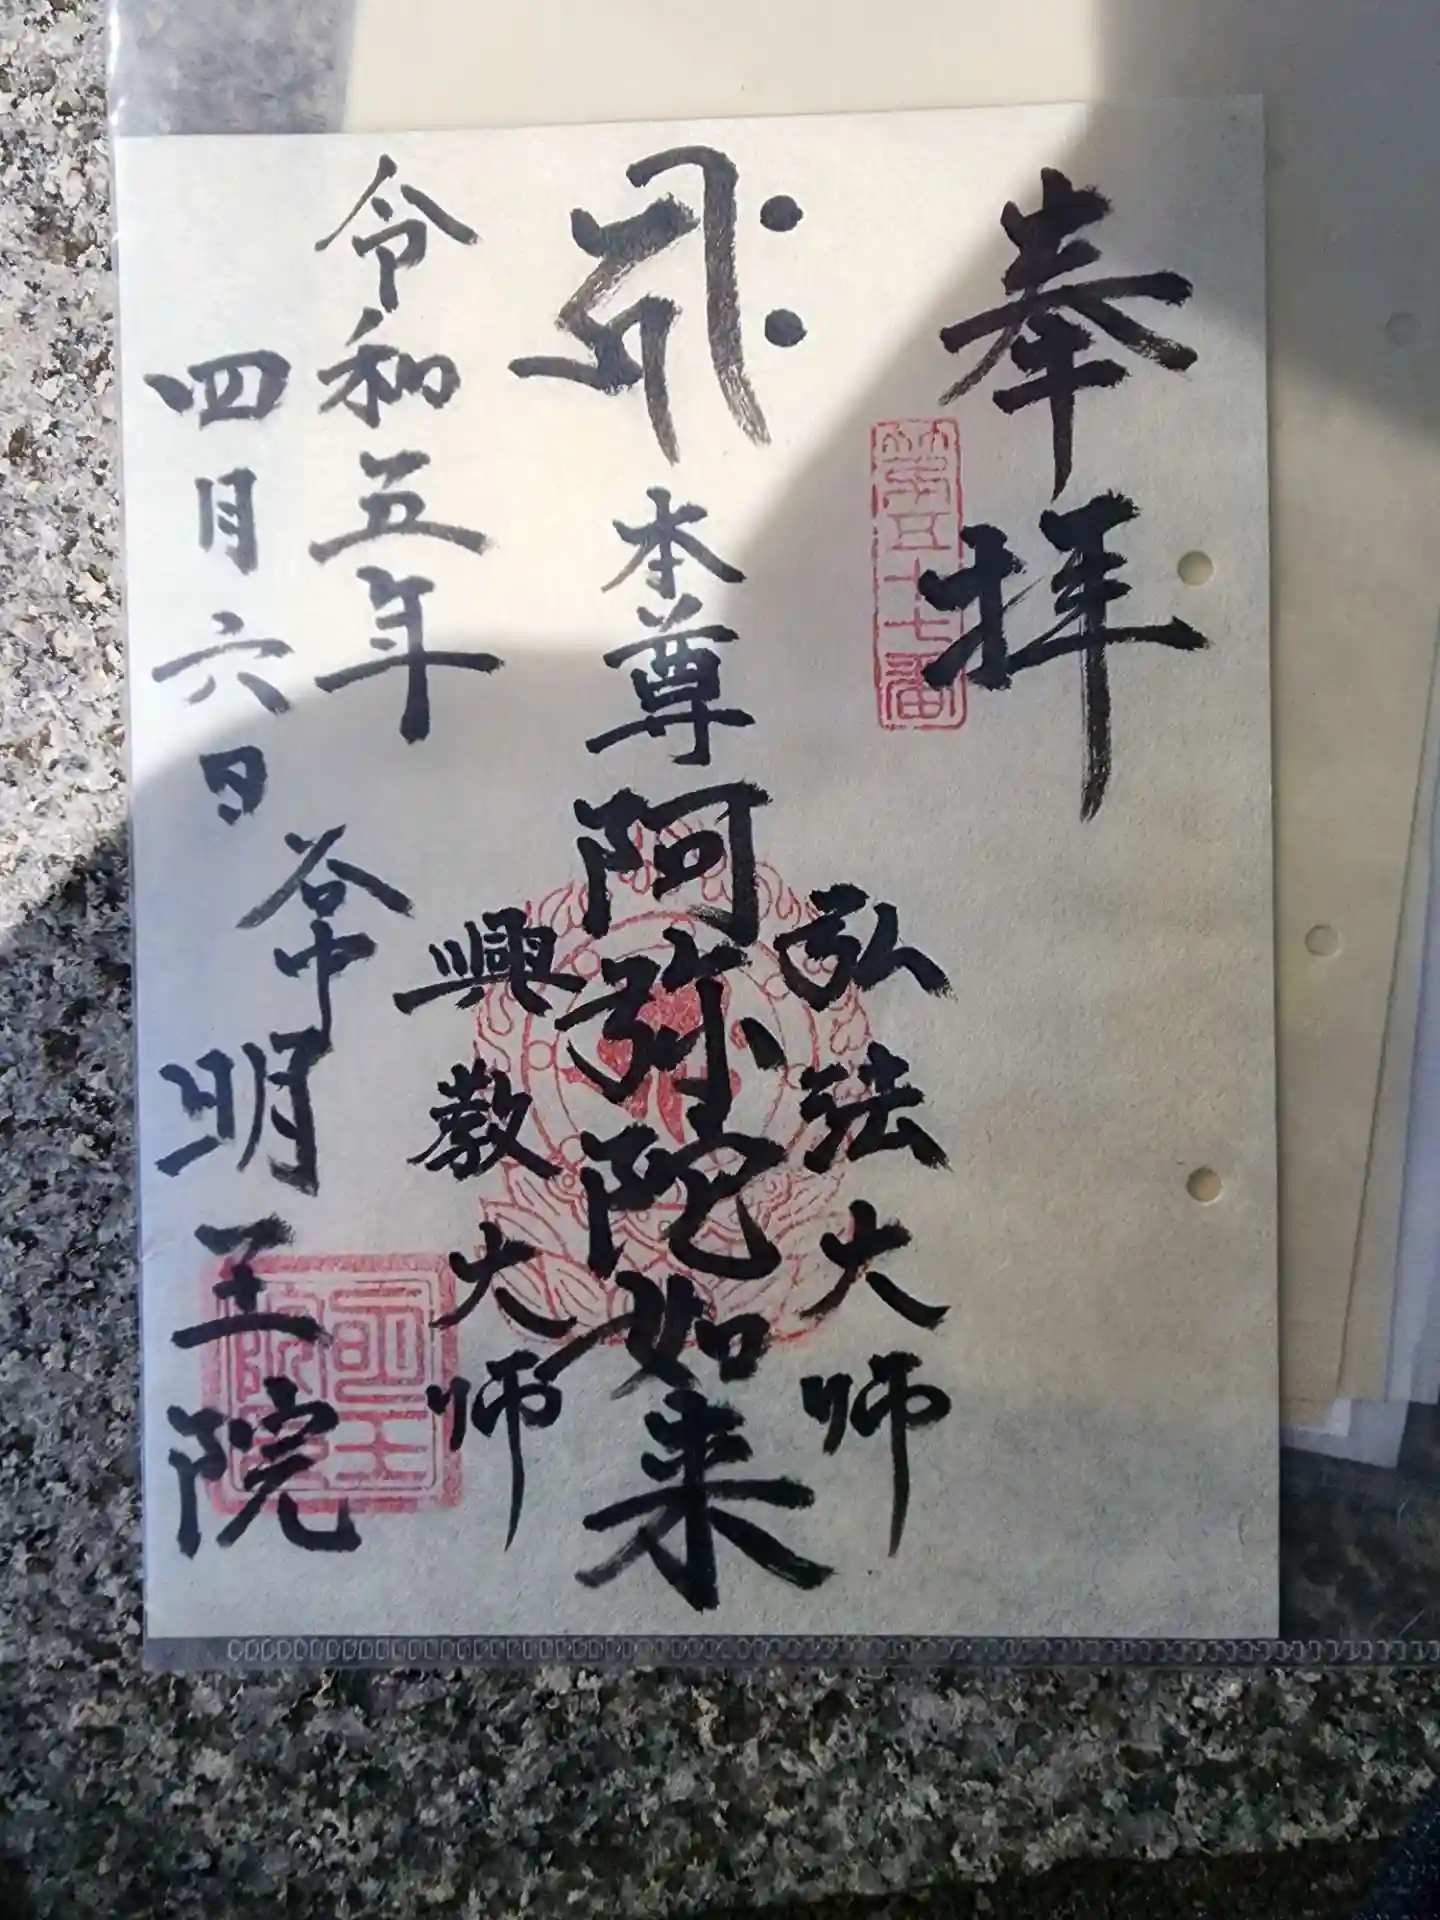 奉拝
第五十七番
弘法大师
𑖮𑖿𑖨𑖱𑖾
本尊阿弥陀如来
興教大师
令和五年
四月六日
谷中
明王院
明王院